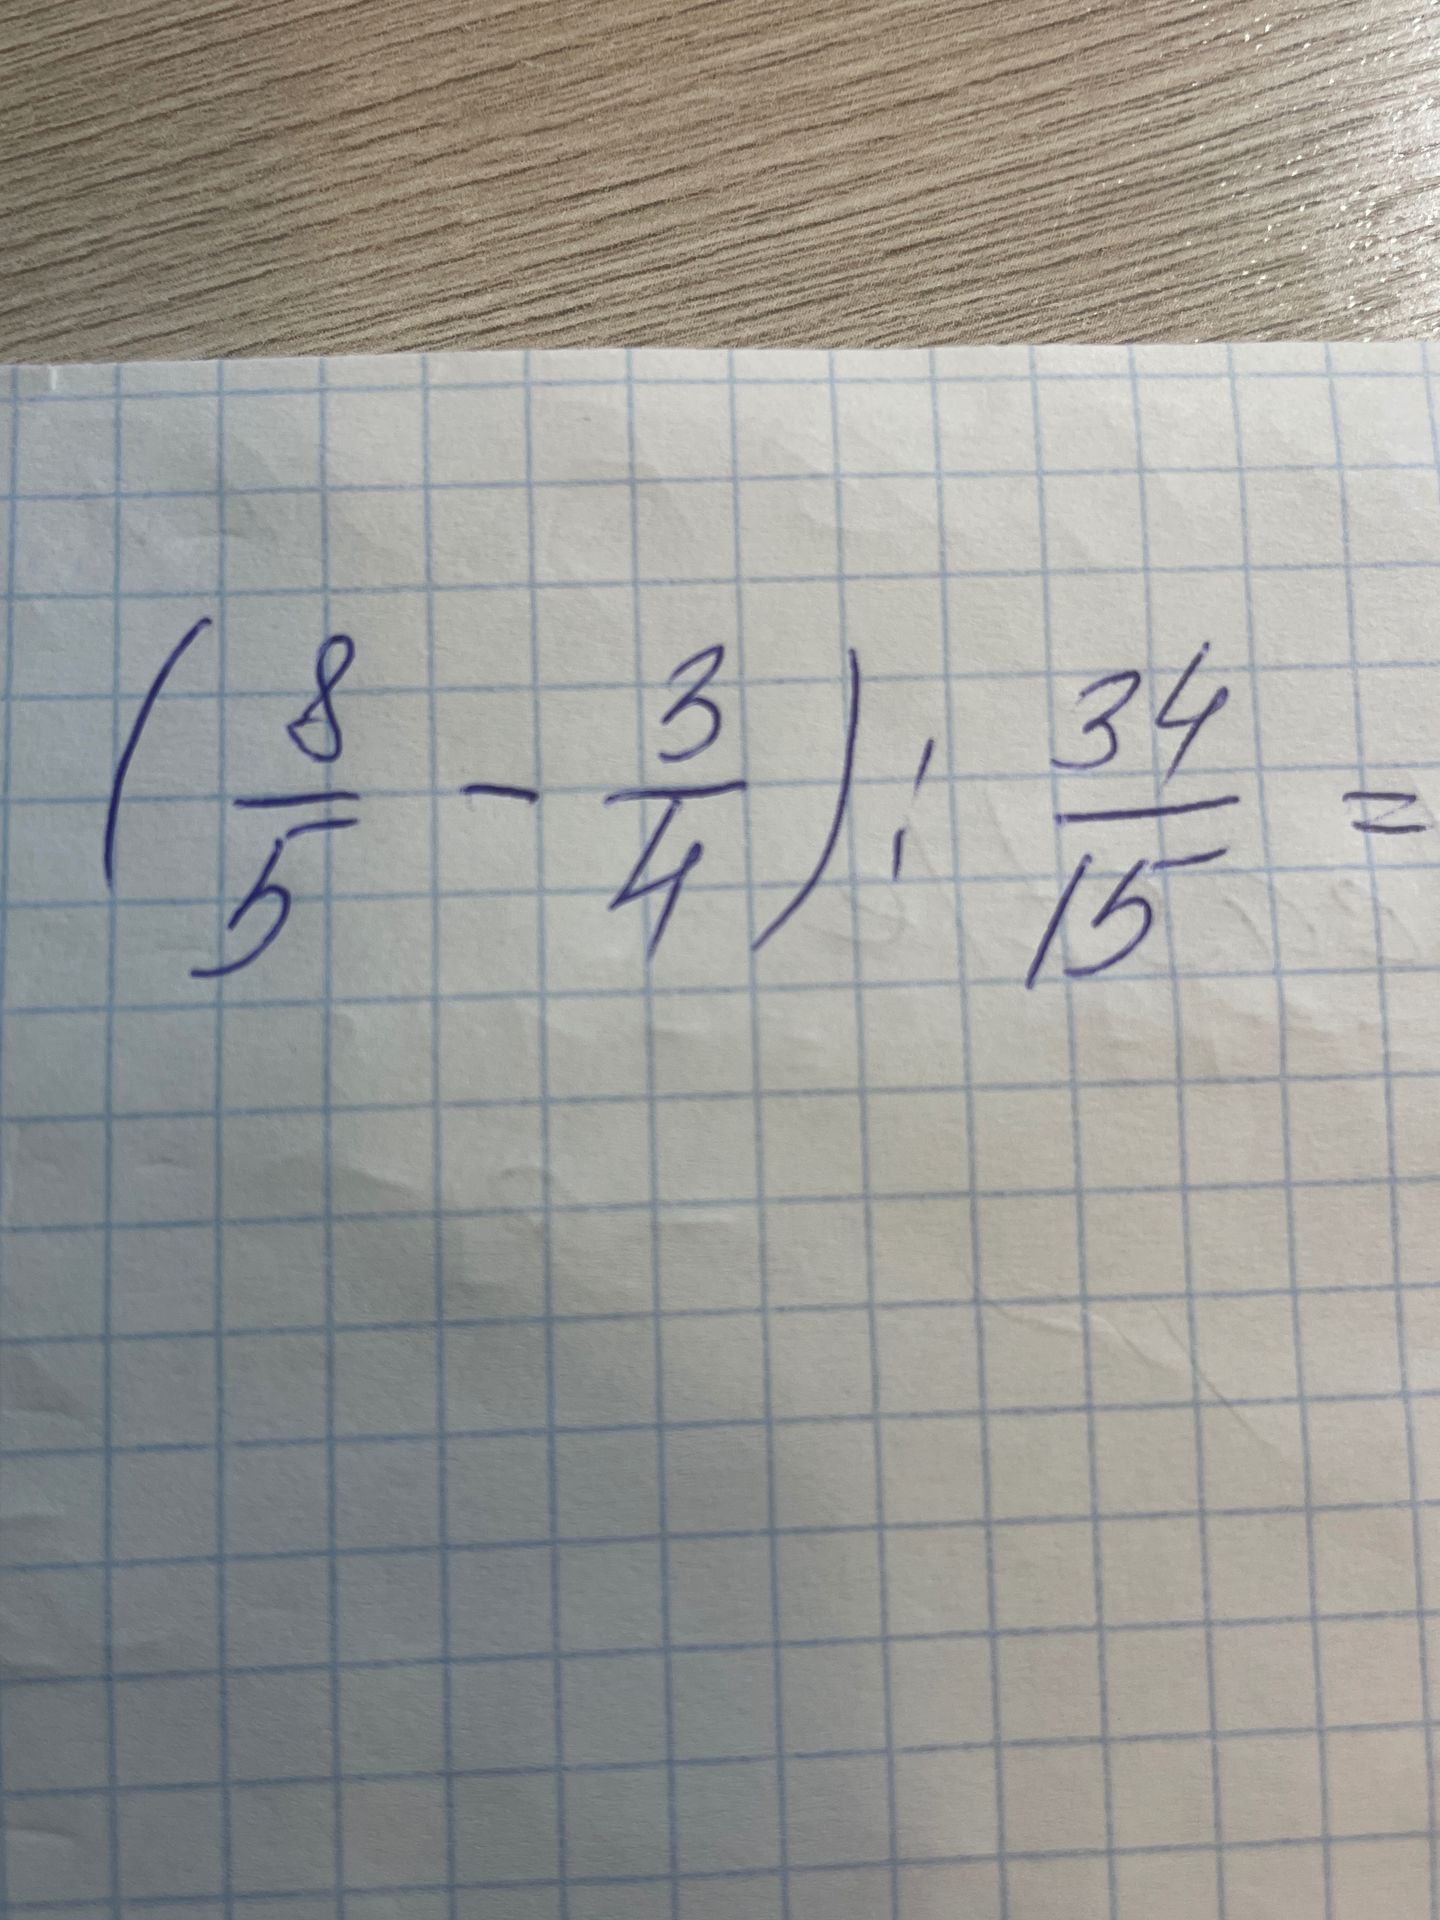 (8/5 - 3/4) : 34/15 =